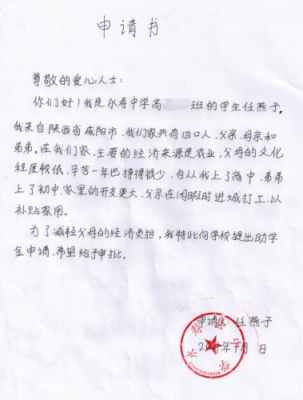 申请书
尊敬的爱心人士：
你们好！我是永寿中学高 班的学生任燕子。
我来自陕西省咸阳市，我们家共有四口人，父亲、母亲和
弟弟。在我们家，主要的经济来源是农业，父母的文化
程度较低，辛苦一年也挣得很少，自从我上了高中，弟弟
上了初中，家里的开支更大，父亲在闲暇时进城打工，以
补贴家用。
为了减轻父母的经济负担，我特此向学校提出助学
金申请，希望给予审批。
申请人：任燕子
年 月 日